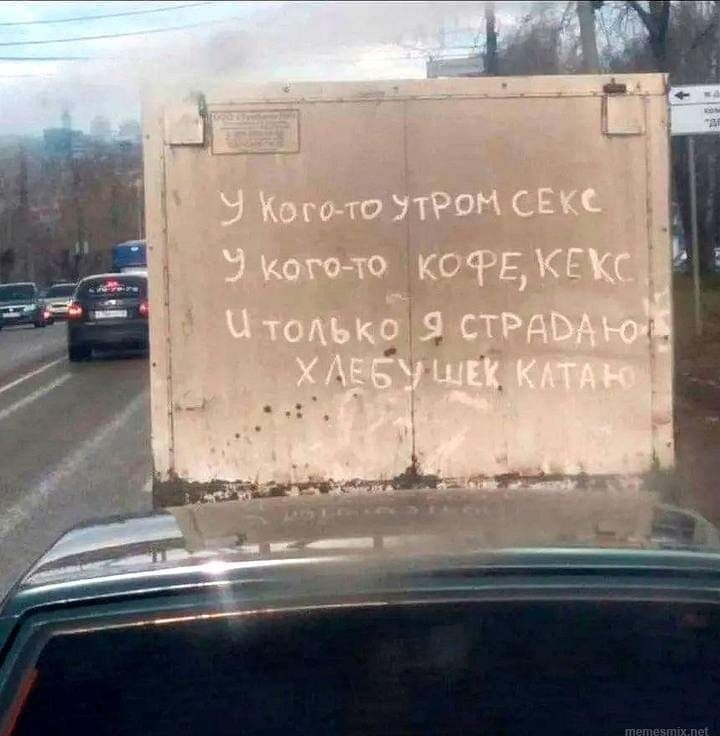 У кого-то утром секс
У кого-то кофе, кекс
И только я страдаю
хлебушек катаю
memesmix.net